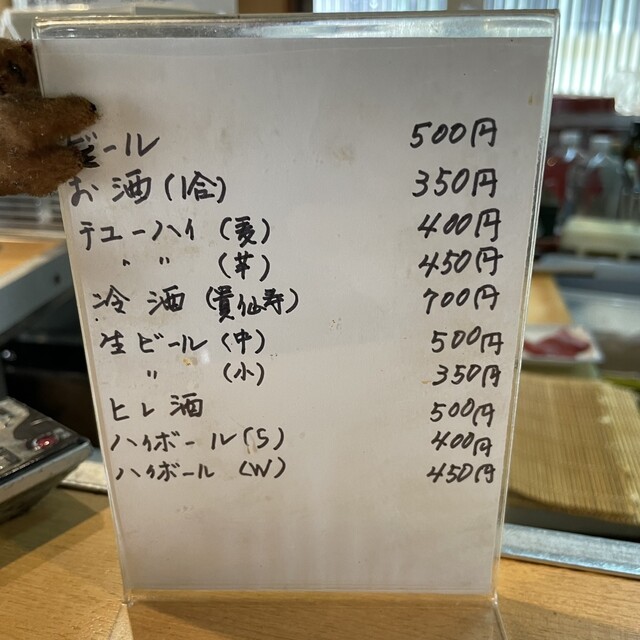 ビール 500円
お酒(1合) 350円
チューハイ(麦) 400円
〃 〃 (芋) 450円
冷酒(貴仙寿) 700円
生ビール(中) 500円
〃 (小) 350円
ヒレ酒 500円
ハイボール(S) 400円
ハイボール(W) 450円